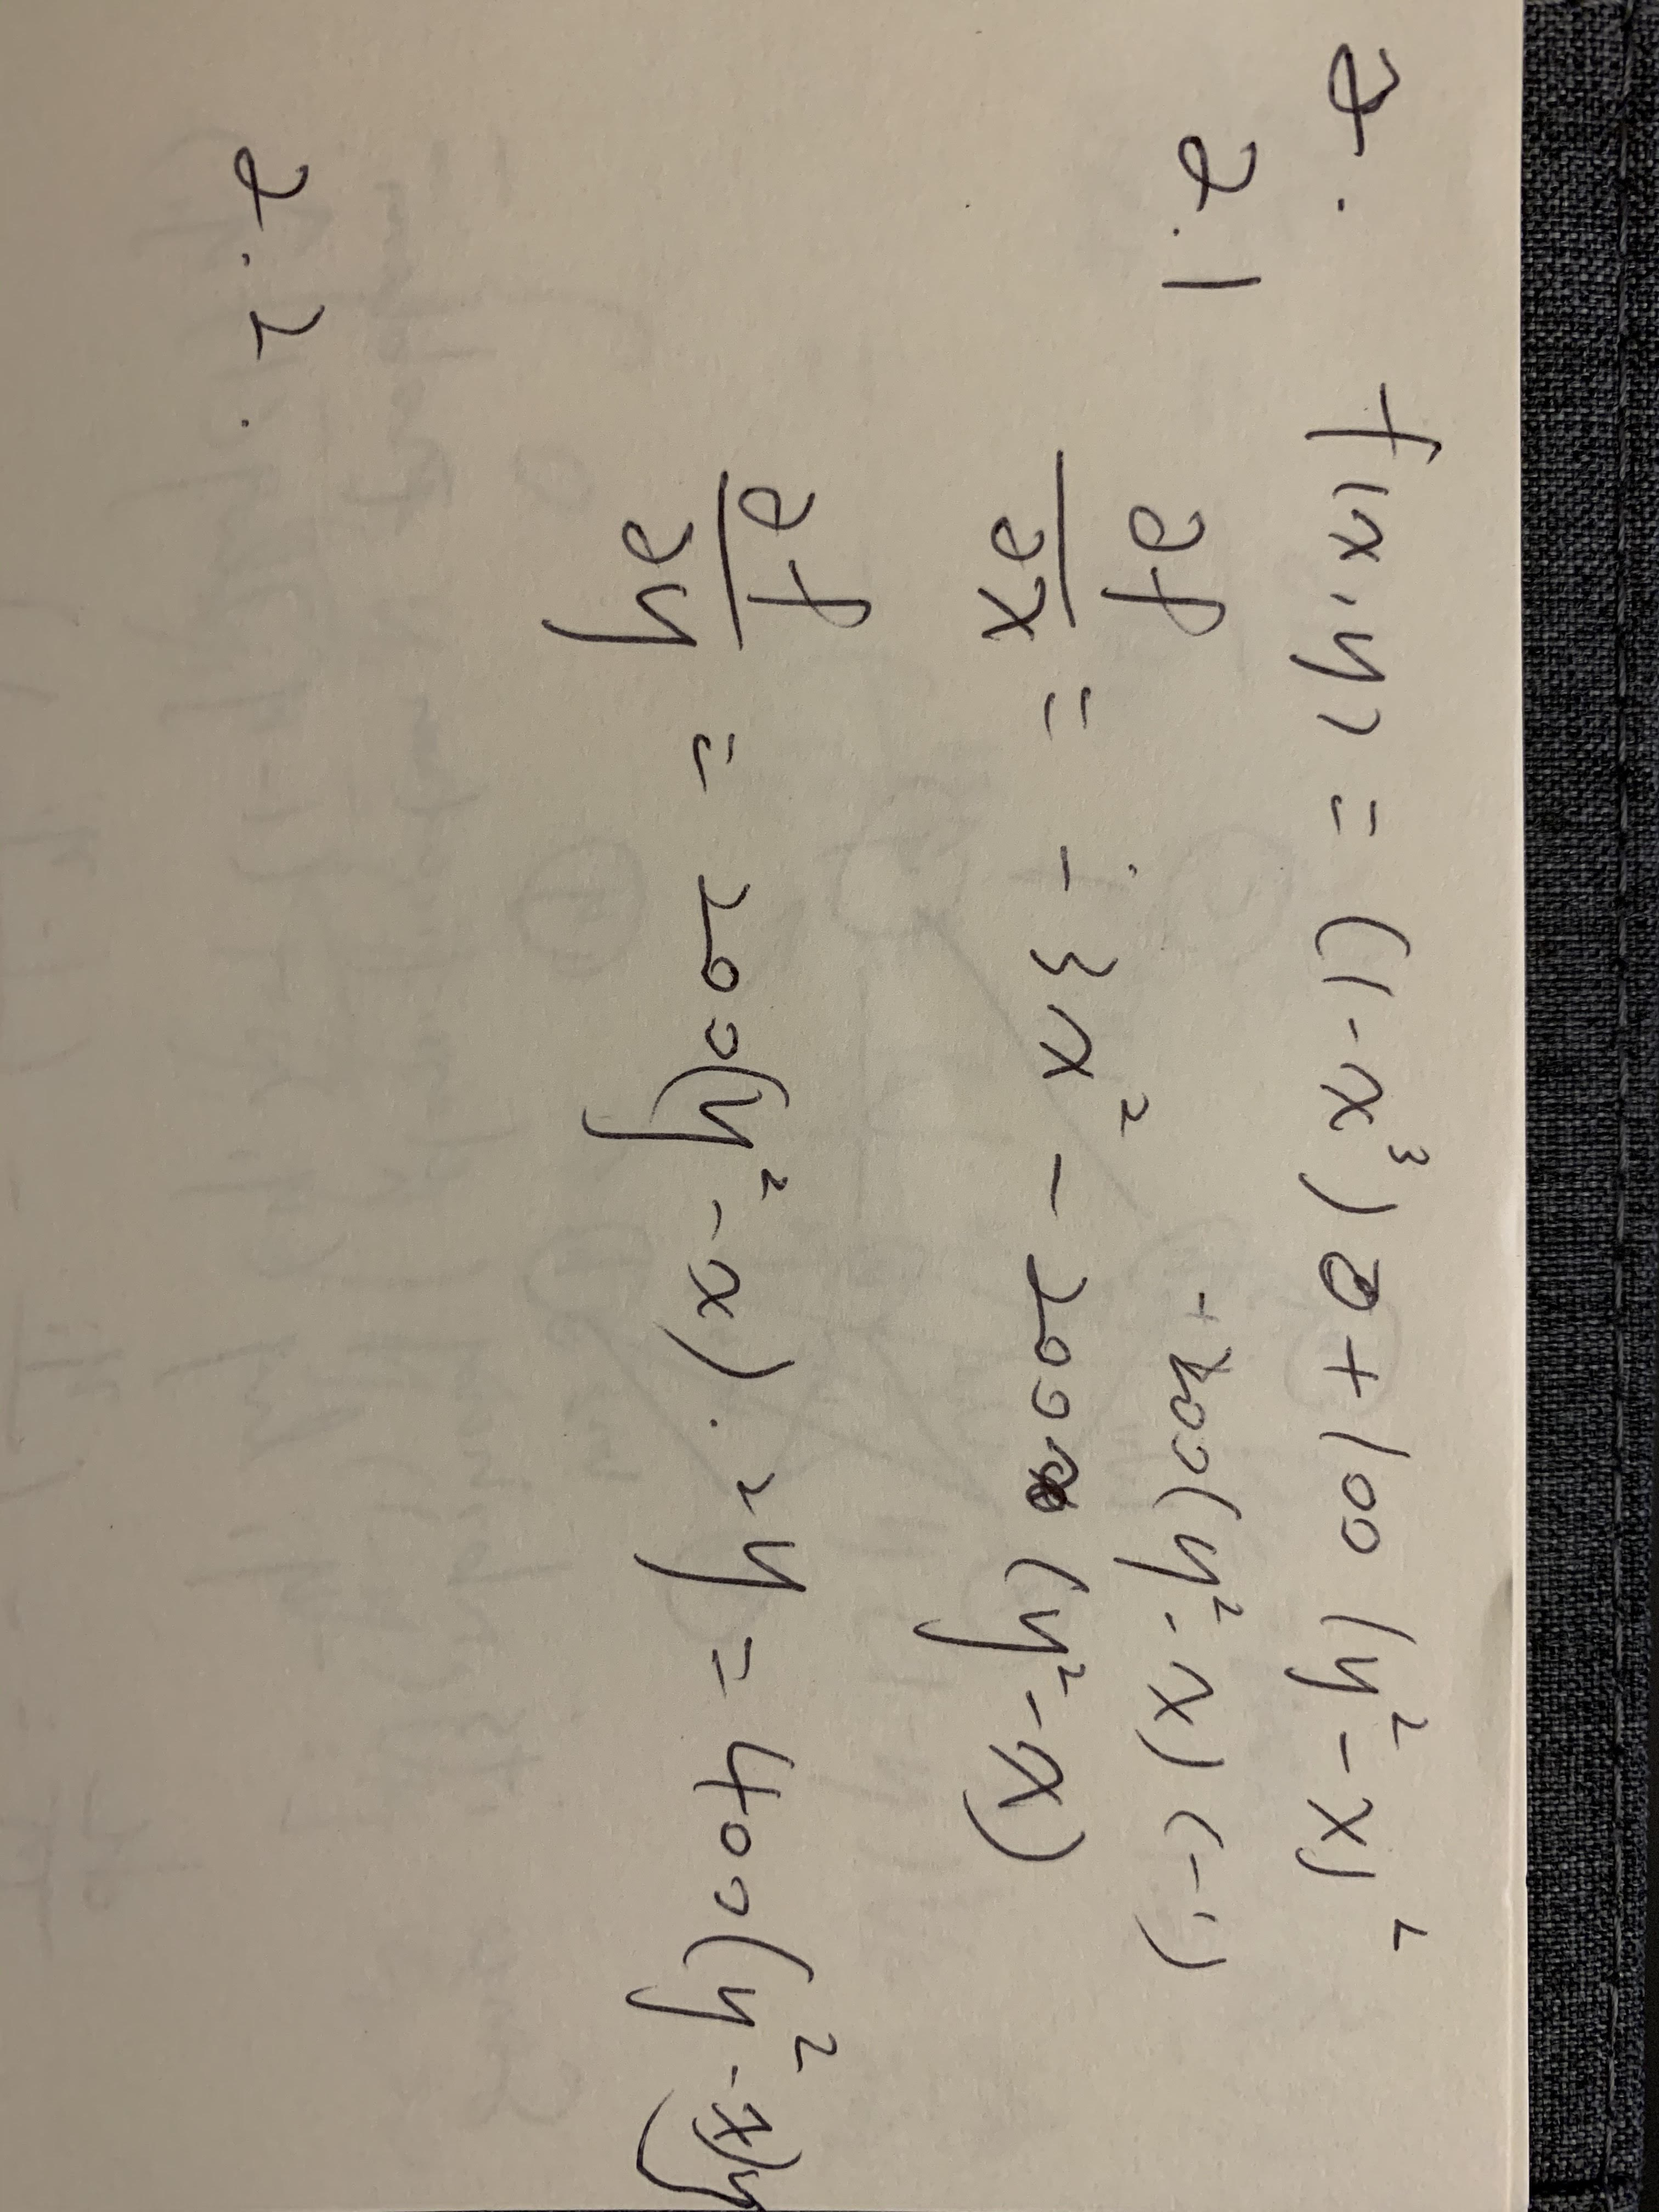 2. f(x,y) = (1-x³) + 100 (y²-x)²
2.1
+200(y²-x)(-1)
∂f/∂x = -3x² - 200 (y²-x)
∂f/∂y = 200(y²-x)·2y = 400(y²-x)y
2.2.